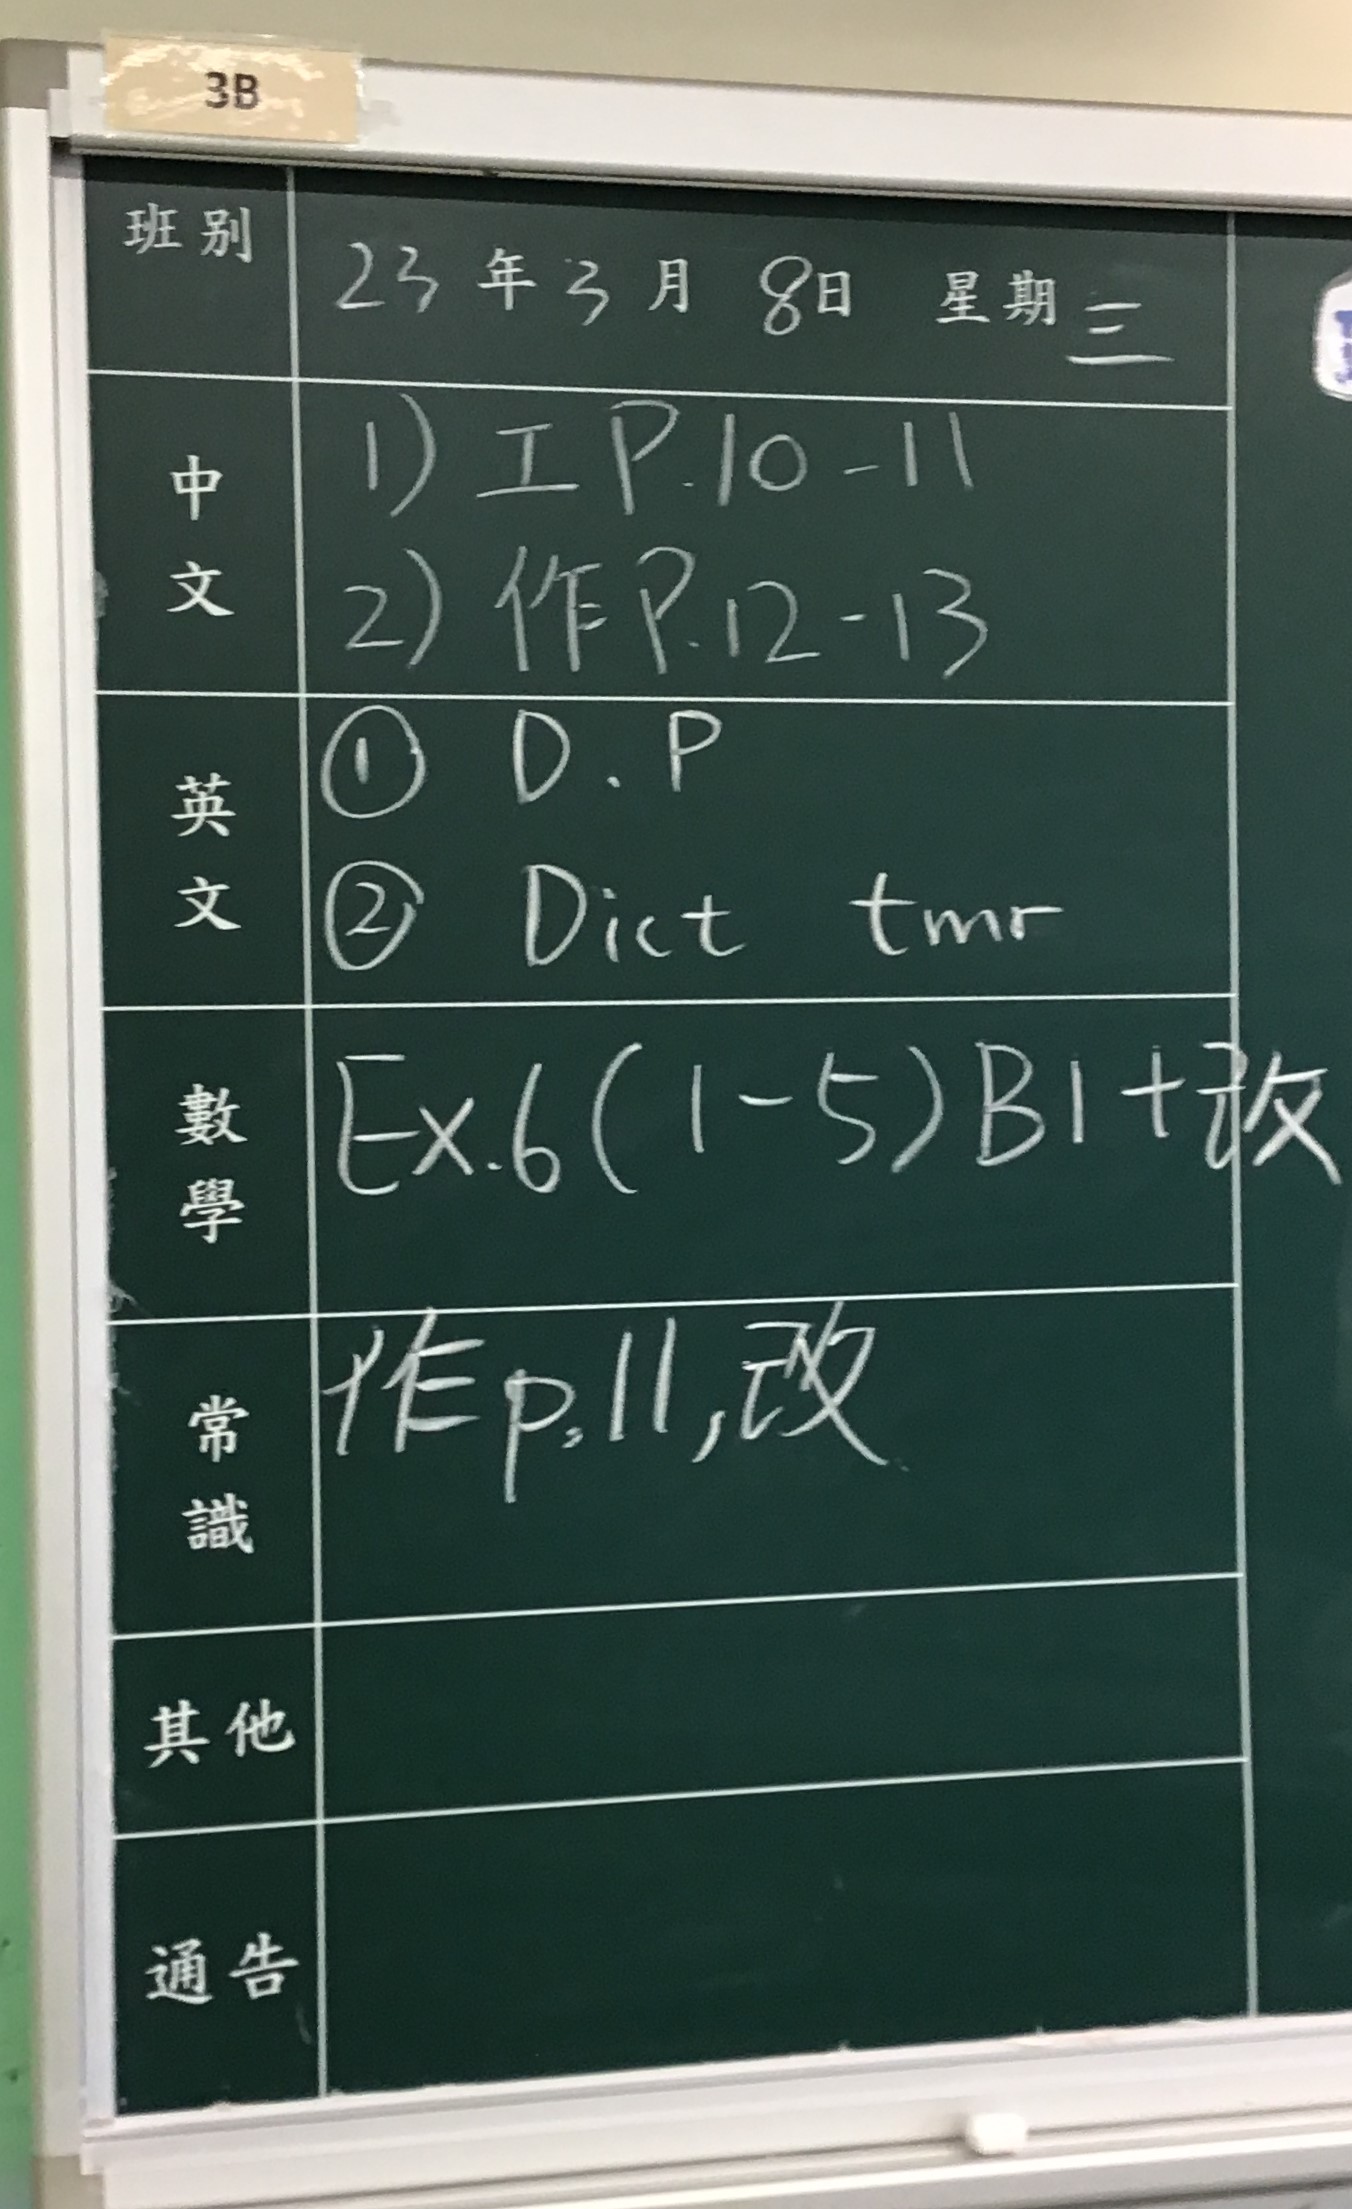 3B
班別 23年3月8日 星期三
中文
1) 工 P.10-11
2) 作 P.12-13
英文
① D.P
② Dict tmr
數學
Ex.6(1-5)B1+改
常識
作p.11,改
其他
通告